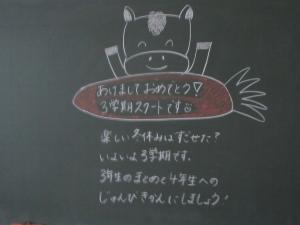 あけましておめでとう!
3学期スタートです
楽しい冬休みはすごせた?
いよいよ3学期です。
3年生のまとめと4年生への
じゅんびきかんにしましょう!